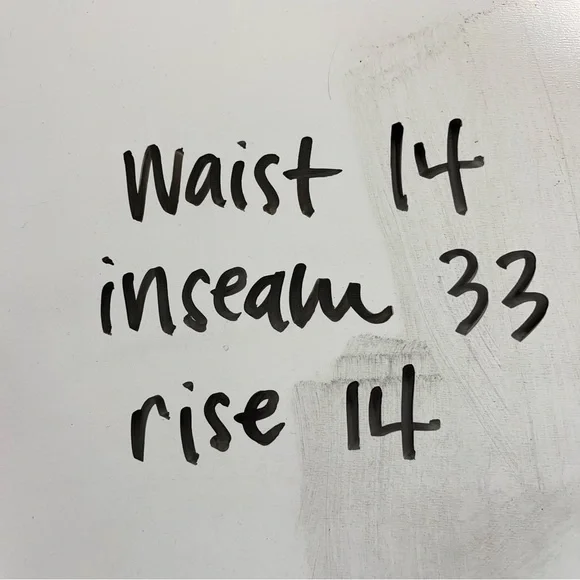 waist 14
inseam 33
rise 14